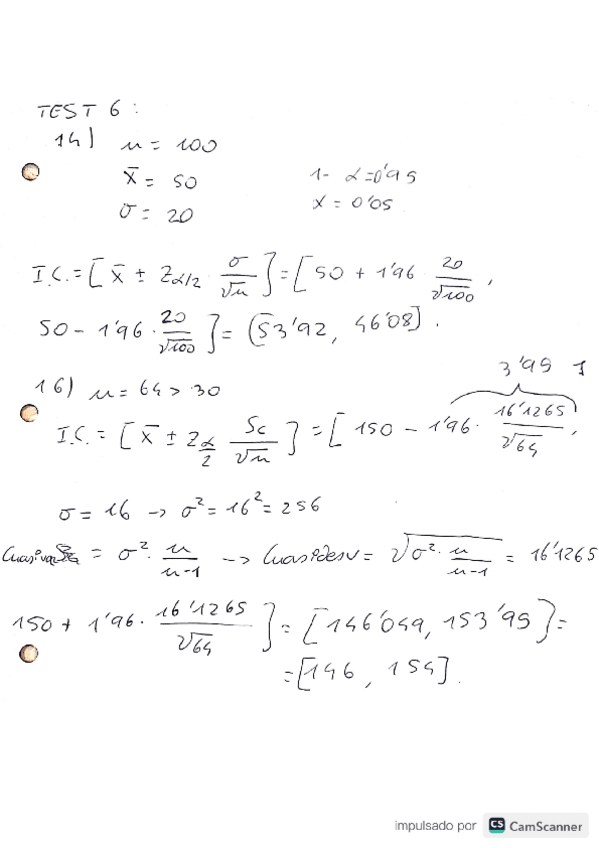 TEST 6:
14) n = 100
x̄ = 50 1 - α = 0'95
σ = 20 α = 0'05
I.C. = [x̄ ± Zα/2 · σ/√n] = [50 + 1'96 · 20/√100,
50 - 1'96 · 20/√100] = (53'92, 46'08].
3'95
16) n = 64 > 30
I.C. = [x̄ ± Zα/2 Sc/√n] = [150 - 1'96 · 16'1265/√64,
σ = 16 → σ² = 16² = 256
Cuasivar = σ² · n/n-1 → Cuasidesv = √σ² · n/n-1 = 16'1265
150 + 1'96 · 16'1265/√64] = [146'049, 153'95] =
= [146, 154].
impulsado por CS CamScanner